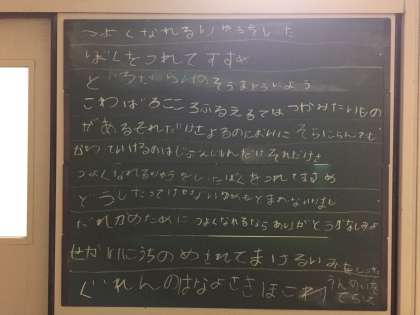 つよくなれるりゆうをしった
ぼくをつれてすすめ
どろだらけの そうまとうによう
こわばるこころふるえるては つかみたいもの
があるそれだけさよるのにおいに そらにらんでも
かわっていけるのはじぶんじしんだけそれだけさ
つよくなれるりゆうをしったぼくをつれてすすめ
どうしたってけせないゆめもとまれないいまも
だれかのためにつよくなれるならありがとうかなしみよ
せかいにうちのめされてまけるいみをしった
ぐれんのはなよさきほこれ うんめいを
てらして